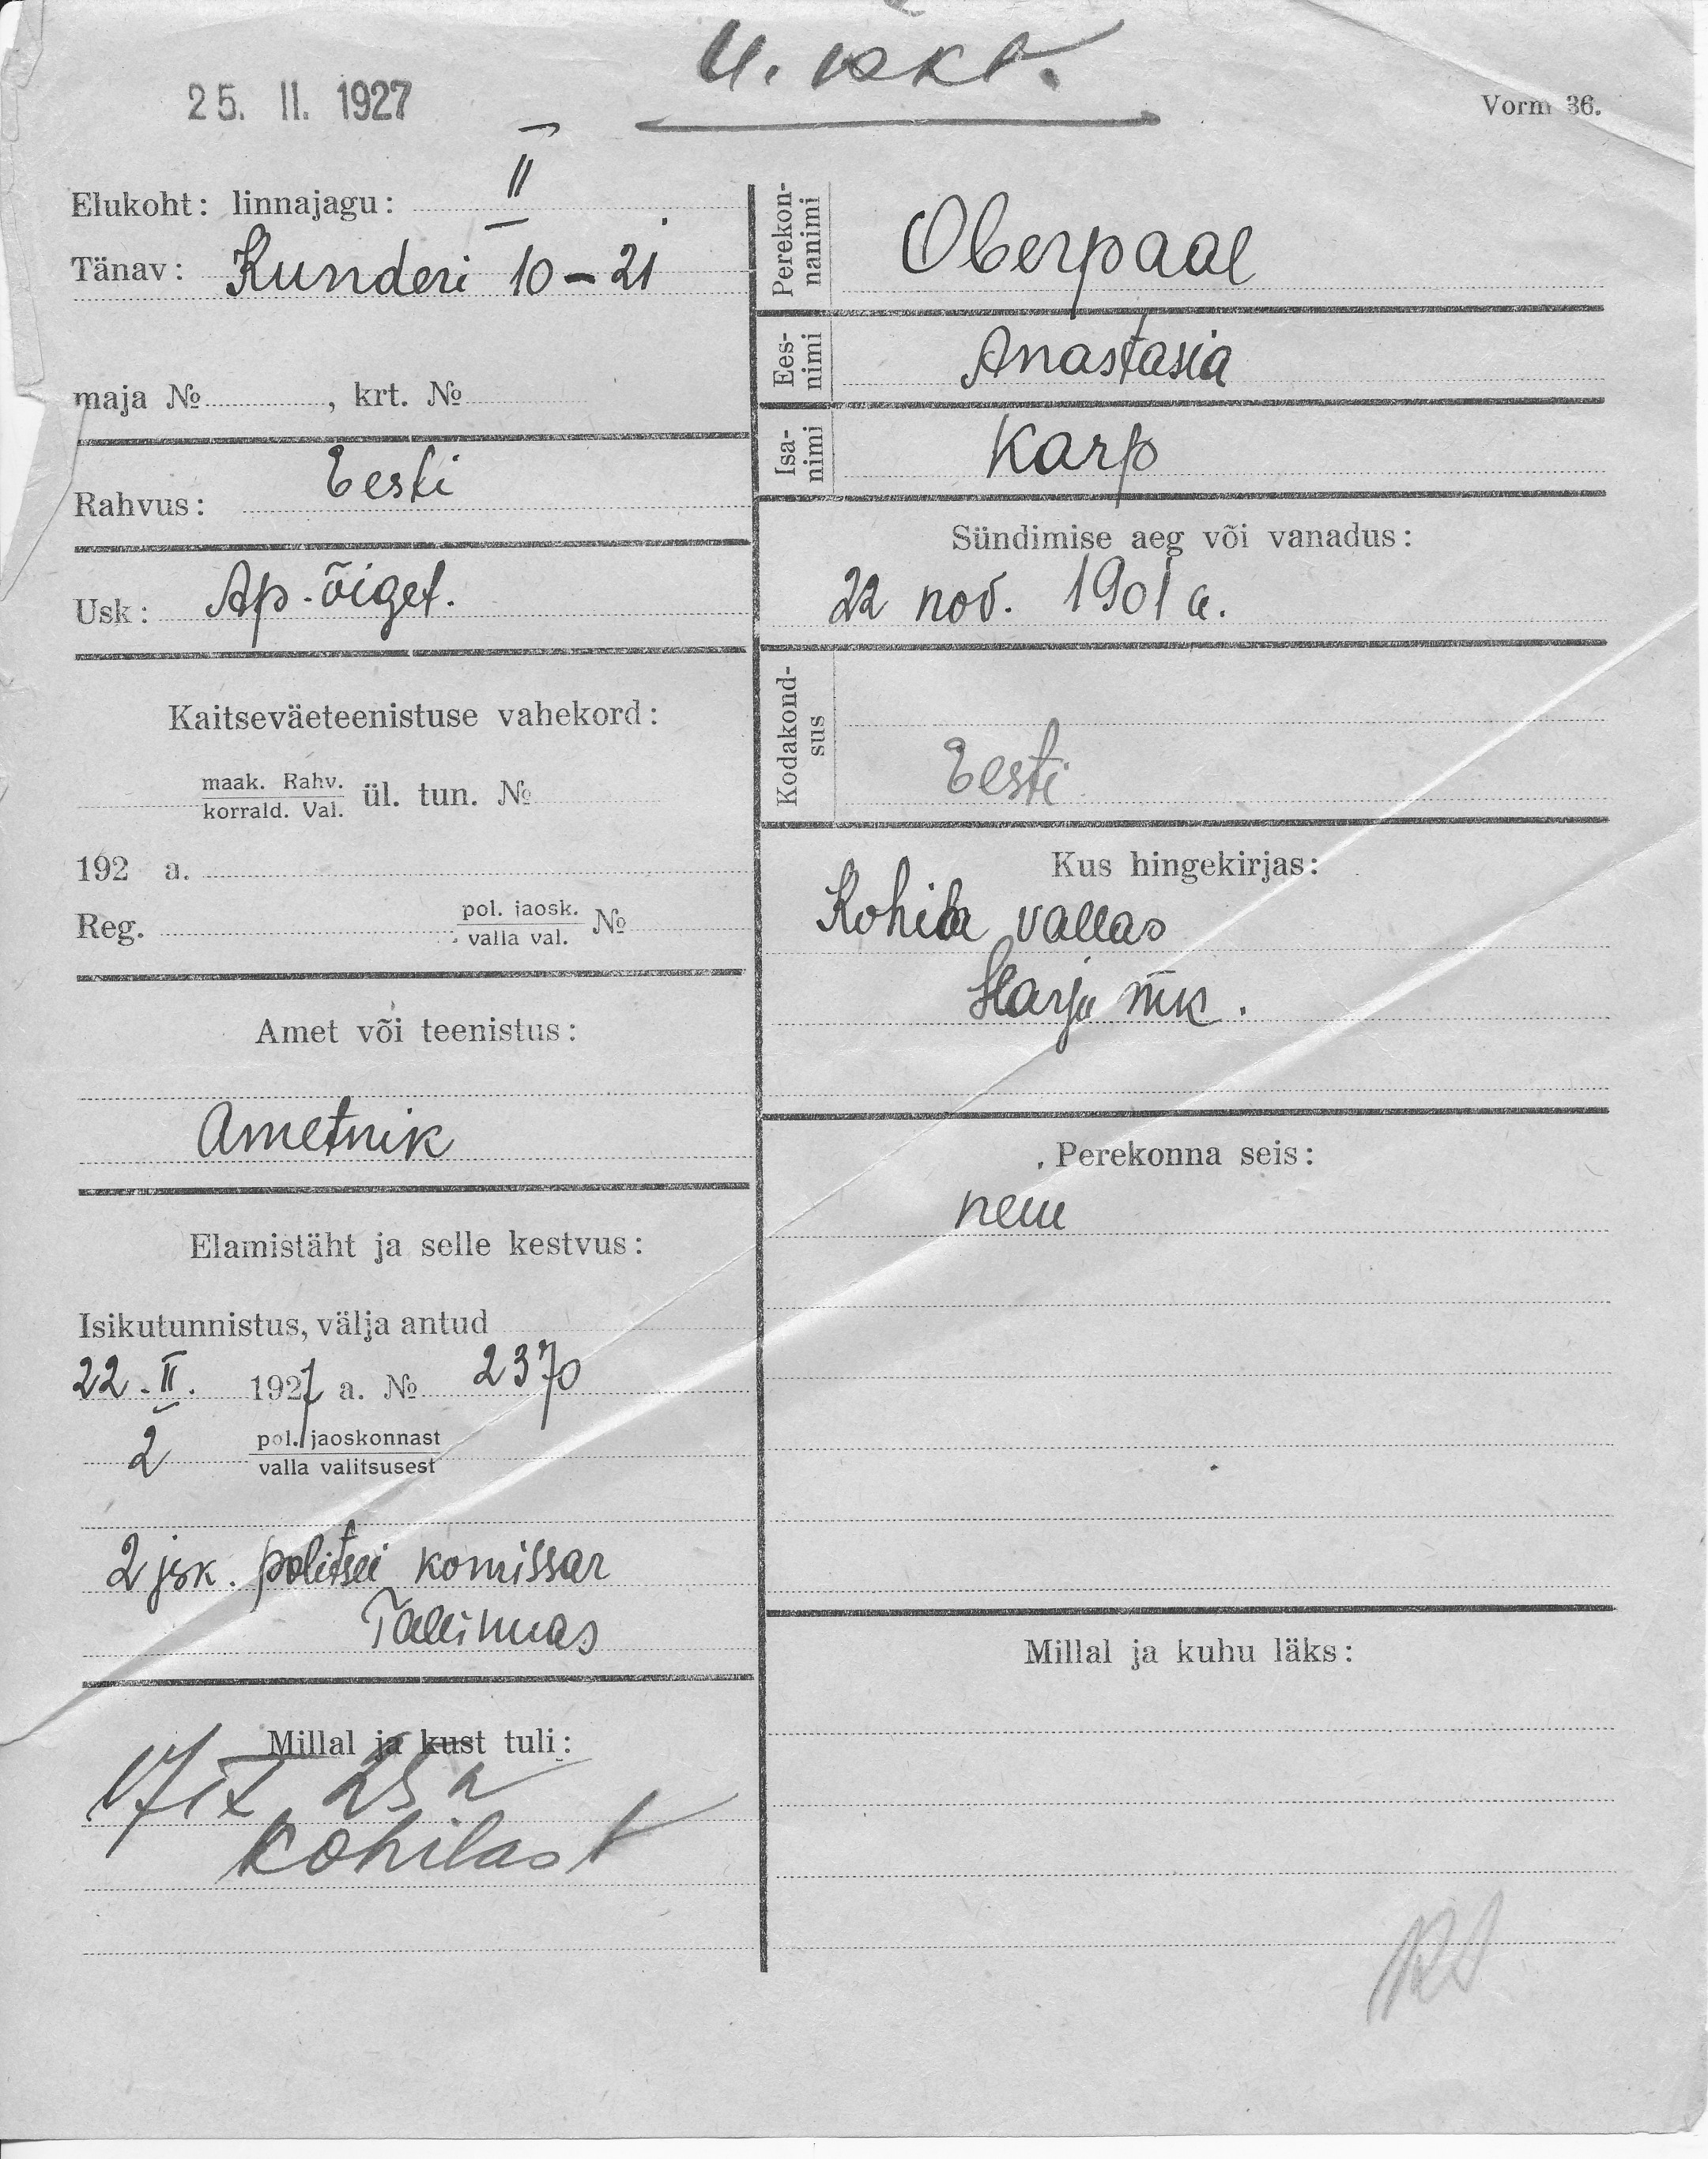 25. II. 1927
Vorm 36.
Elukoht: linnajagu: II
Tänav: Kunderi 10 – 21
maja № , krt. №
Rahvus: Eesti
Usk: Ap.-õiget.
Kaitseväeteenistuse vahekord:
maak. Rahv.
korrald. Val.
ül. tun. №
192 a.
Reg. pol. jaosk.
valla val.
№
Amet või teenistus:
Ametnik
Elamistäht ja selle kestvus:
Isikutunnistus, välja antud
22. II. 1927 a. № 2370
2 pol. jaoskonnast
valla valitsusest
2 jsk. politsei komissar
Tallinnas
Millal ja kust tuli:
Kohilast
Perekon-
nanimi
Oberpaal
Ees-
nimi
Anastasia
Isa-
nimi
Karp
Sündimise aeg või vanadus:
22 nov. 1901 a.
Kodakond-
sus
Eesti
Kus hingekirjas:
Kohila vallas
Harju mk.
Perekonna seis:
Millal ja kuhu läks: